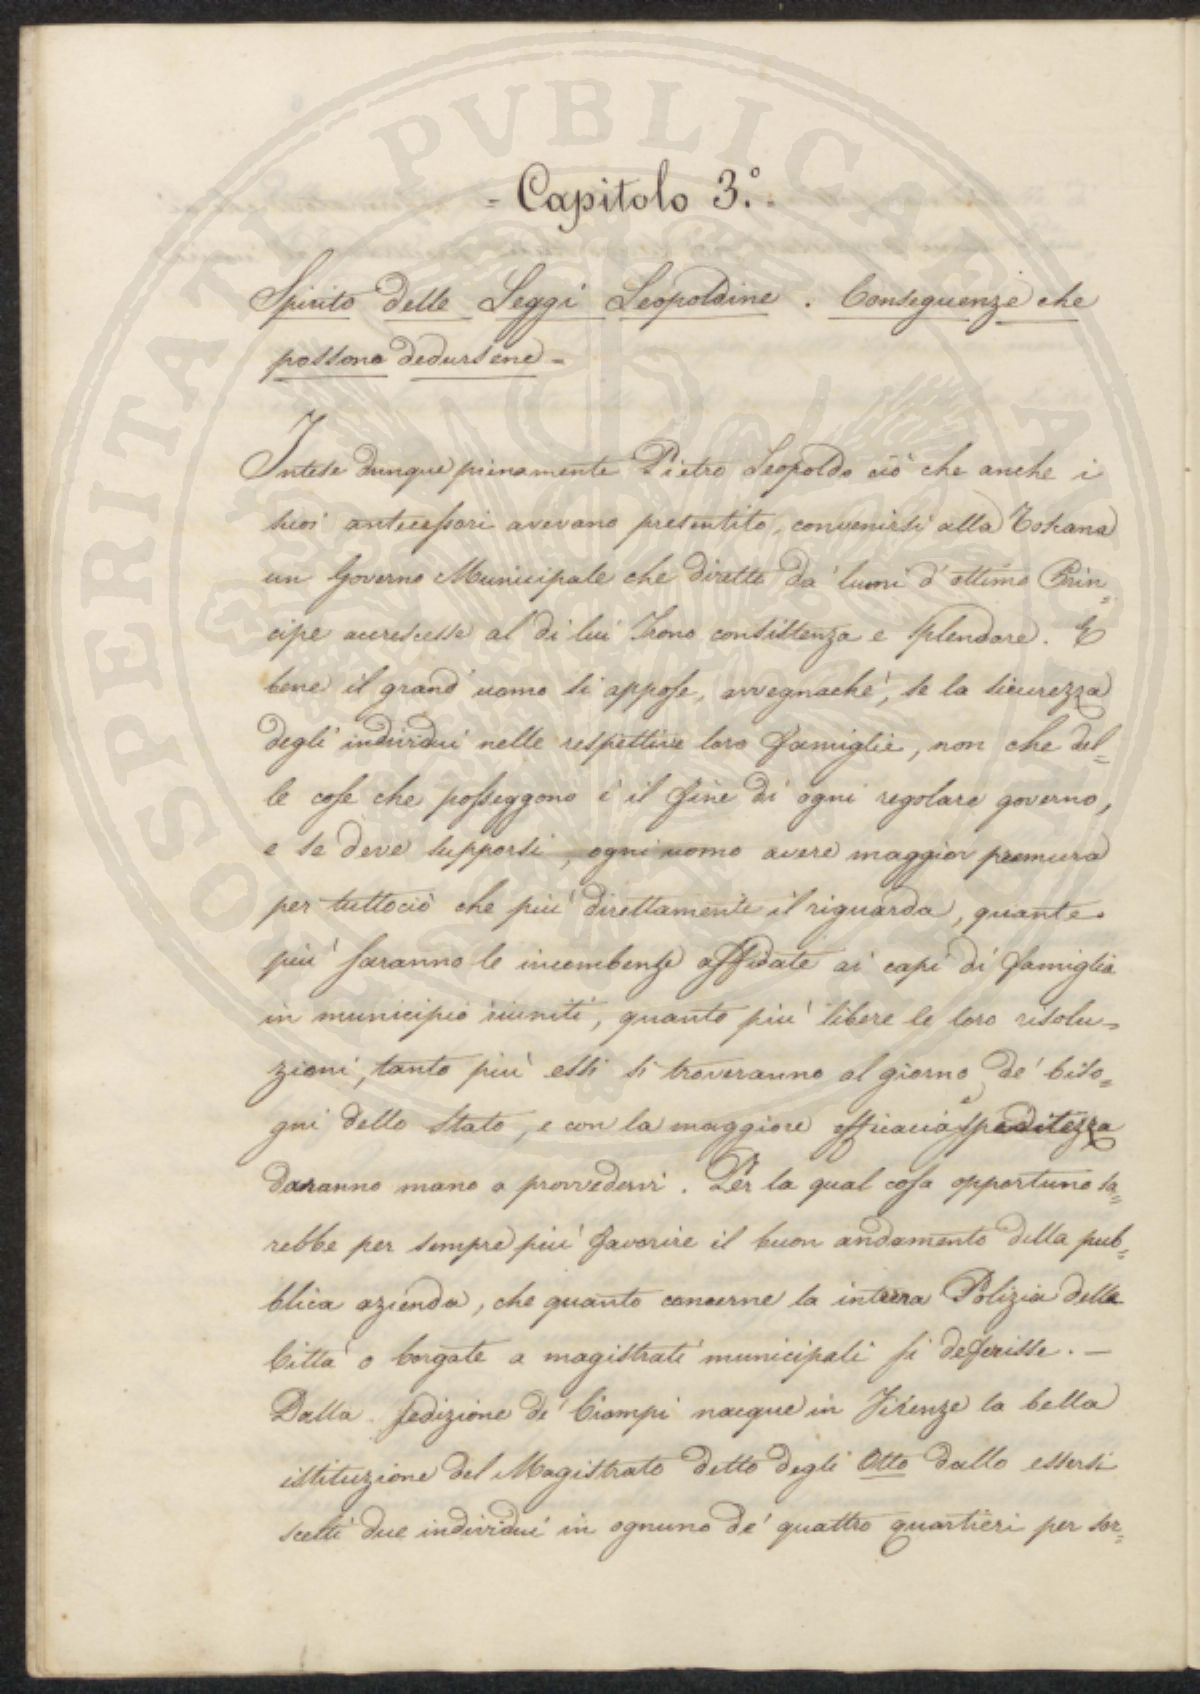 PROSPERITATI PVBLICAE AVGENDAE
- Capitolo 3.º -
Spirito delle Leggi Leopoldine. Conseguenze che
possono dedursene -
Intese dunque pienamente Pietro Leopoldo ciò che anche i
suoi antecessori avevano presentito, convenirsi alla Toskana
un Governo Municipale che diretto da' lumi d'ottimo Prin=
cipe accrescesse al di lui Trono consistenza e splendore. E
bene il grand'uomo si appose, avvegnachè, se la sicurezza
degli individui nelle respettive loro famiglie, non che del=
le cose che posseggono è il fine di ogni regolare governo,
e se deve supporsi, ogni uomo avere maggior premura
per tuttociò che più direttamente il riguarda, quante
più saranno le incombenze affidate ai capi di famiglia
in municipio riuniti, quanto più libere le loro risolu=
zioni, tanto più essi si troveranno al giorno de' biso=
gni dello Stato, e con la maggiore efficacia e speditezza
daranno mano a provvedervi. Per la qual cosa opportuno sa=
rebbe per sempre più favorire il buon andamento della pub=
blica azienda, che quanto concerne la intera Polizia delle
Città o borgate a magistrati municipali si deferisse. —
Dalla sedizione de' Ciompi nacque in Firenze la bella
istituzione del Magistrato detto degli Otto dallo essersi
scelti due individui in ognuno de' quattro quartieri per sor=